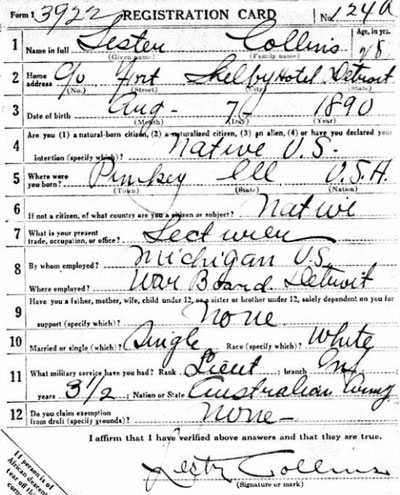 Form 1 3922 REGISTRATION CARD No. 124A
1 Name in full Lester Collins Age, in yrs. 28
(Given name) (Family name)
2 Home address c/o Fort Shelby Hotel Detroit
(No.) (Street) (City) (State)
3 Date of birth Aug - 7 1890
(Month) (Day) (Year)
Are you (1) a natural-born citizen, (2) a naturalized citizen, (3) an alien, (4) or have you declared your
4 intention (specify which)? Native U.S.
5 Where were you born? Pinkey Ill U.S.A.
(Town) (State) (Nation)
6 If not a citizen, of what country are you a citizen or subject? Native
7 What is your present trade, occupation, or office? Lecturer
8 By whom employed? Michigan U.S.
Where employed? War Board Detroit
9 Have you a father, mother, wife, child under 12, or a sister or brother under 12, solely dependent on you for
support (specify which)? None
10 Married or single (which)? Single Race (specify which)? White
11 What military service have you had? Rank Lieut ; branch
years 3 1/2 ; Nation or State Australian Army
12 Do you claim exemption from draft (specify grounds)? None
I affirm that I have verified above answers and that they are true.
Lester Collins
(Signature or mark)
If person is of
African descent